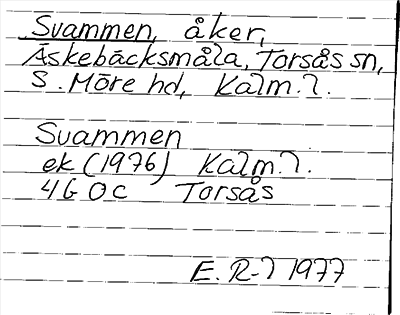 Svammen, åker,
Askebäcksmåla, Torsås sn,
S. Möre hd, Kalm. l.
Svammen
ek (1976) Kalm. l.
4G 0c Torsås
E. R-l 1977